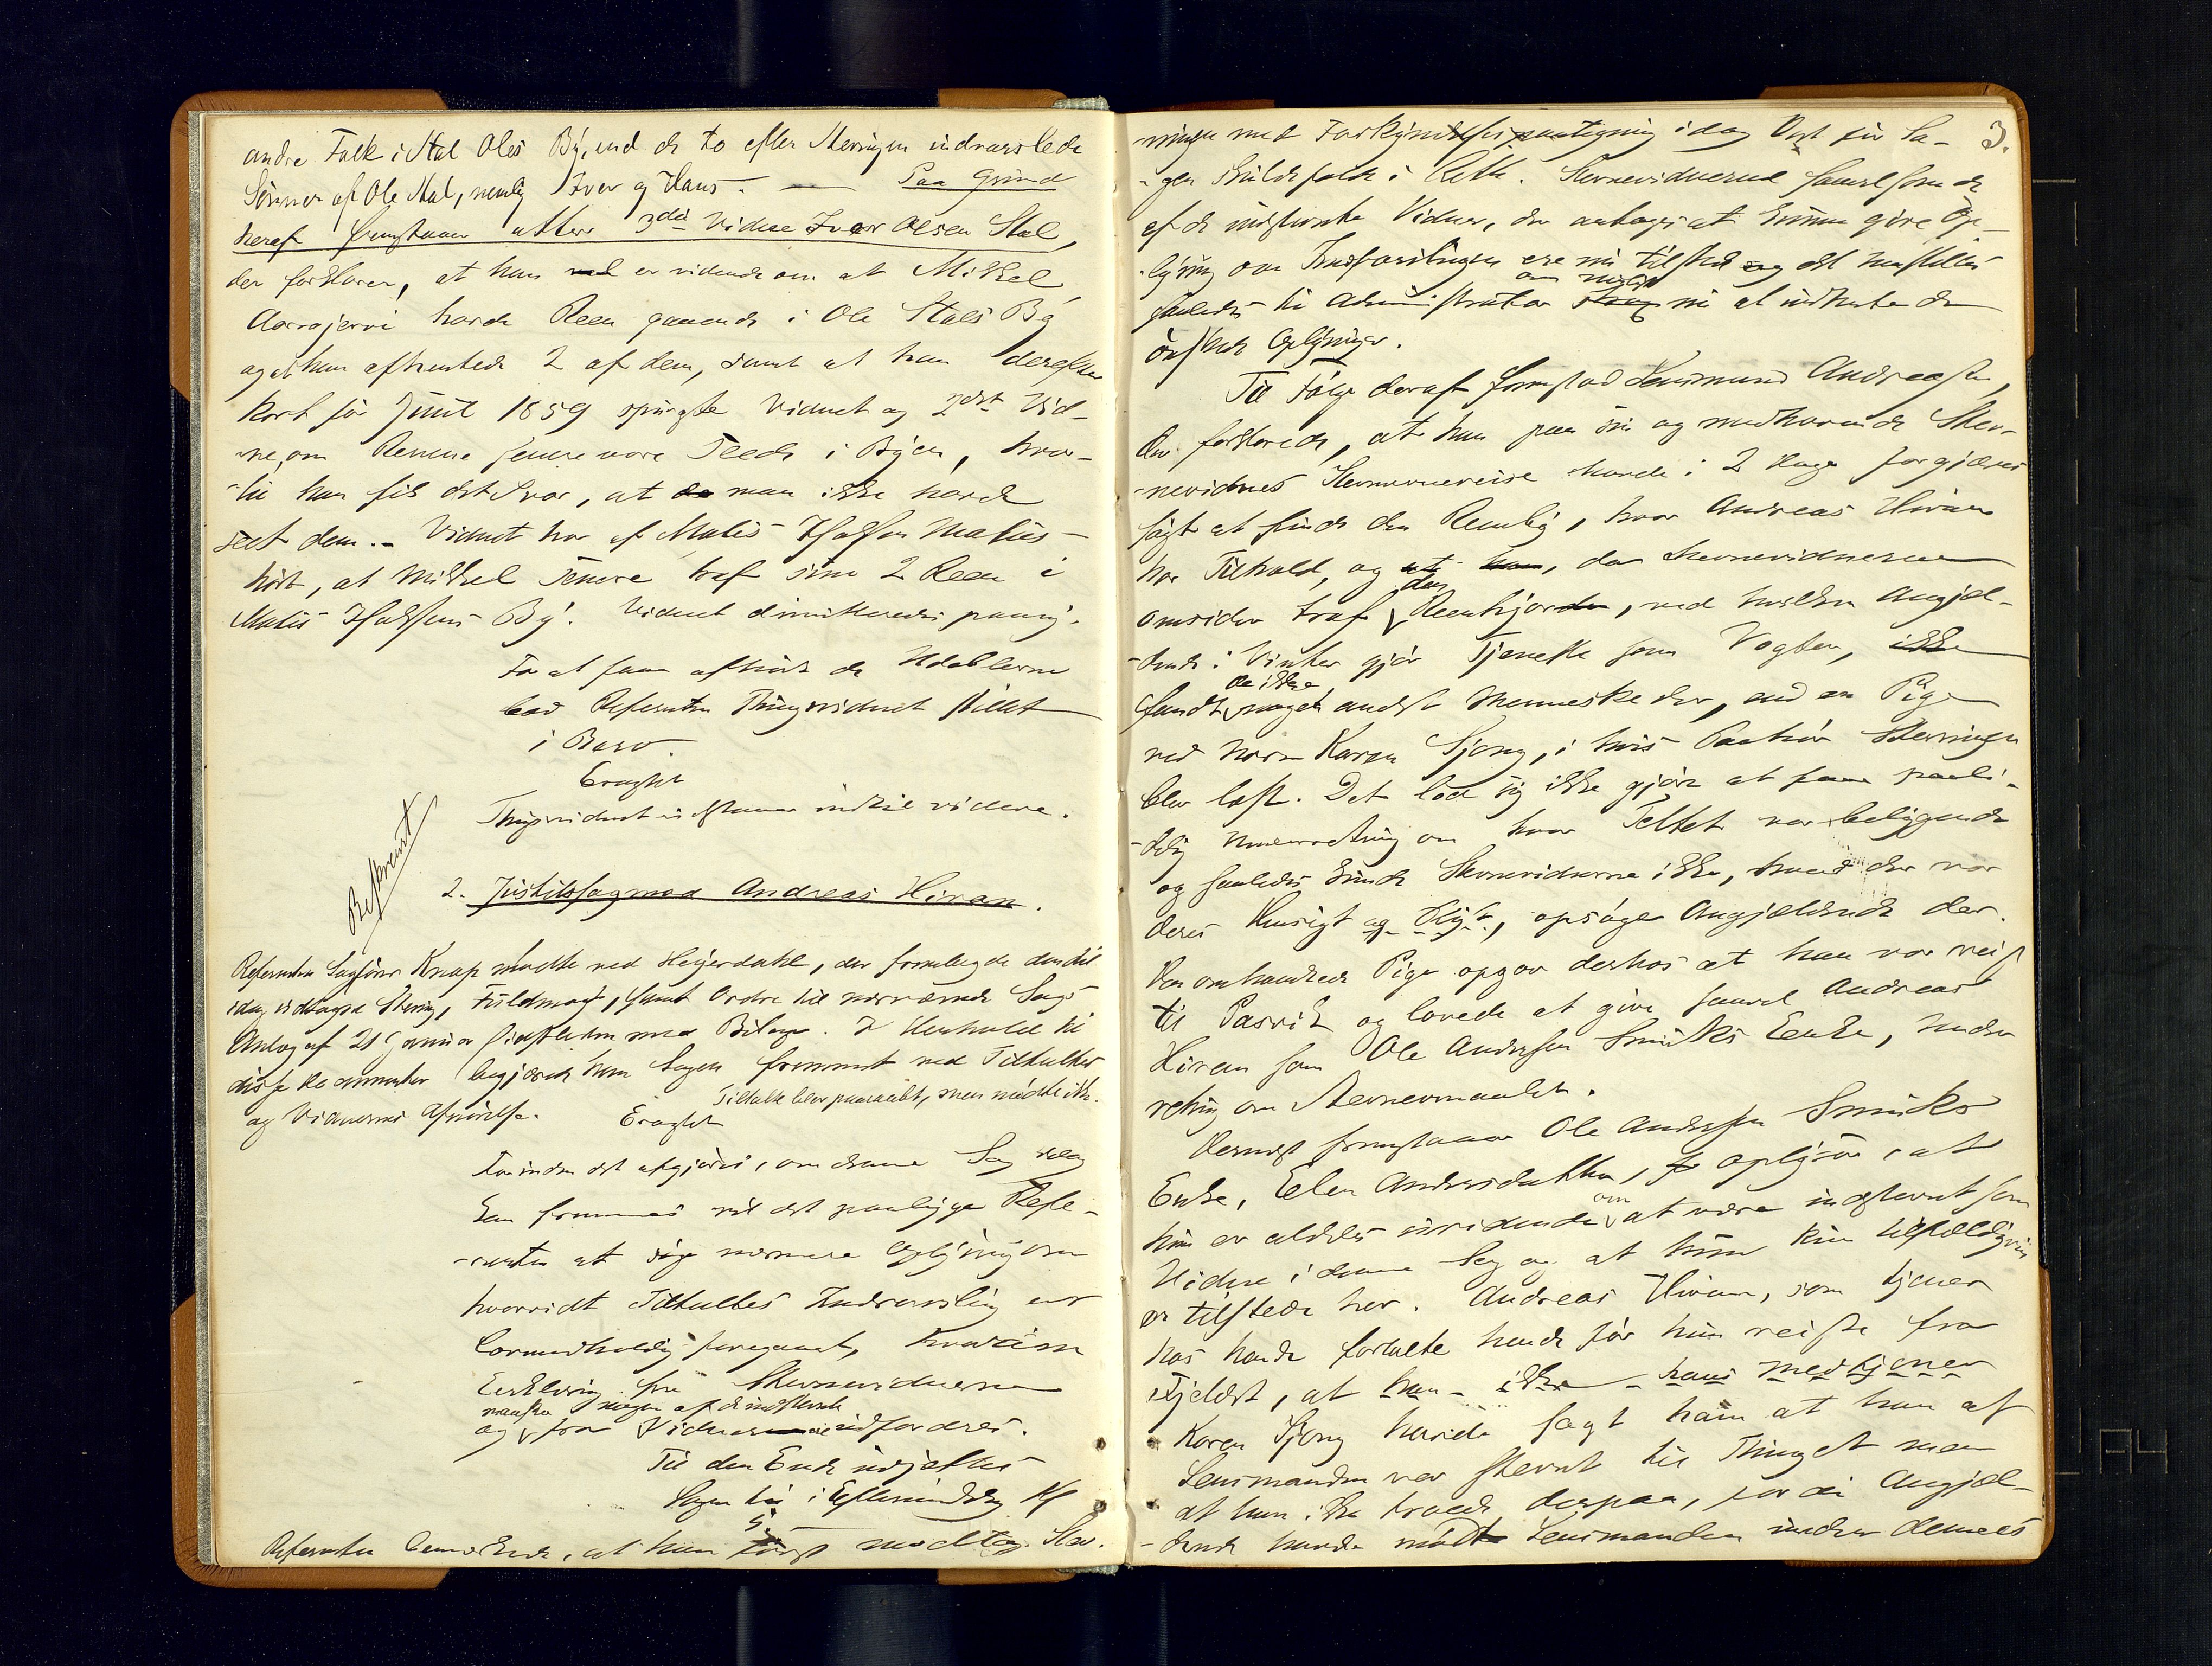 andre Folk i Stal Oles By, end de to efter Stevningen indvarslede
Sønner af Ole Stal, nemlig Iver og Hans. — Paa Grund
heraf fremstaaer atter 3die Vidne Iver Olsen Stal,
der forklarer, at han er vidende om at Mikkel
Aarrojervi havde Reen gaaende i Ole Stals By
og at han afhentede 2 af dem, samt at han derefter
kort før Juul 1859 spurgte Vidnet og 2det Vid-
ne, om Renene senere vare seede i Byen, hvor-
til han fik det Svar, at man ikke havde
seet dem. - Vidnet har af Matis Isaksen Matus
hørt, at Mikkel senere traf sine 2 Reen i
Matis Isaksens By. Vidnet dimitteredes paany.
For at faae afhørt de Udeblevne
bad Referenten Thingsvidnet stillet
i Bero.
Eragtet
Thingsvidnet udstaaer indtil videre.
Beskrevet
2. Justitssag mod Andreas Hivan.
Referenten Sagfører Knap mødte ved Heijerdahl, der fremlagde den til
idag udtagne Stevning, Fuldmagt, samt Ordre til nærværende Sags
Anlæg af 21 Januar sidstleden med Bilage. I Henhold til
disse Documenter begjærede han Sagen fremmet ved Tiltaltes
og Vidnernes Afhørelse. Tiltalte blev paaraabt, men mødte ikke.
Eragtet
Forinden det afgjøres, om denne Sag idag
kan fremmes vil det paaligge Refe-
renten at søge nærmere Oplysning om
hvorvidt Tiltaltes Indvarsling er
lovmedholdig foregaaet, hvorom
Erklæring fra Stevnevidnerne
maaske nogen af de indstevnte
og fra Vidner indfordres.
Til den Ende udsættes
Sagen til i Eftermiddag Kl
5.
Referenten bemærkede, at han først modtog Stev-
3.
ningen med Forkyndelsespaategning idag Vest for Sa-
gen Skuldefolk i Retten. Stevnevidnerne saavelsom de
af de indstevnte Vidner, der antages at kunne give Op-
lysning om Indvarslingen ere nu tilstede og det henstilles
om muligt
saaledes til Administrator nu at indhente de
ønskede Oplysninger.
Til Følge deraf fremstod Lensmand Andreassen,
der forklarede, at han paa sin og medhavende Stev-
nevidnes Stevnereise havde i 2 Dage forgjæves
søgt at finde den Reenby, hvor Andreas Hivan
har Tilhold, og da Stevnevidnerne
omsider traf den Reenhjord, ved hvilken Angjæl-
dende i Vinter gjør Tjeneste som Vogter,
de ikke
fandt noget andet Menneske der, end en Pige
ved Navn Karen Sjong, i hvis Paahør Stevningen
blev læst. Det lod sig ikke gjøre at faae paali-
delig Underretning om hvor Teltet var beliggende
og saaledes kunde Stevnevidnerne ikke, hvad der var
deres Hensigt og Pligt, opsøge Angjældende der.
Den omhandlede Pige opgav derhos at han var reist
til Pasvik og lovede at give saavel Andreas
Hivan som Ole Andersen Smuks Enke, Under-
retning om Stevnemaalet.
Dernæst fremstaaer Ole Andersen Smuks
Enke, Elen Andersdatter, oplyser, at
hun er aldeles uvidende om at være indstevnt som
Vidne i denne Sag og at hun kun tilfældigviis
er tilstede her. Andreas Hivan, som tjener
hos hende fortalte hende før hun reiste fra
Fjeldet, at han - ikke - hans Medtjener
Karen Sjong havde sagt ham at han af
Lensmanden var stevnt til Thinget men
at han ikke troede derpaa, fordi Angjæl-
dende havde mødt Lensmanden under dennes